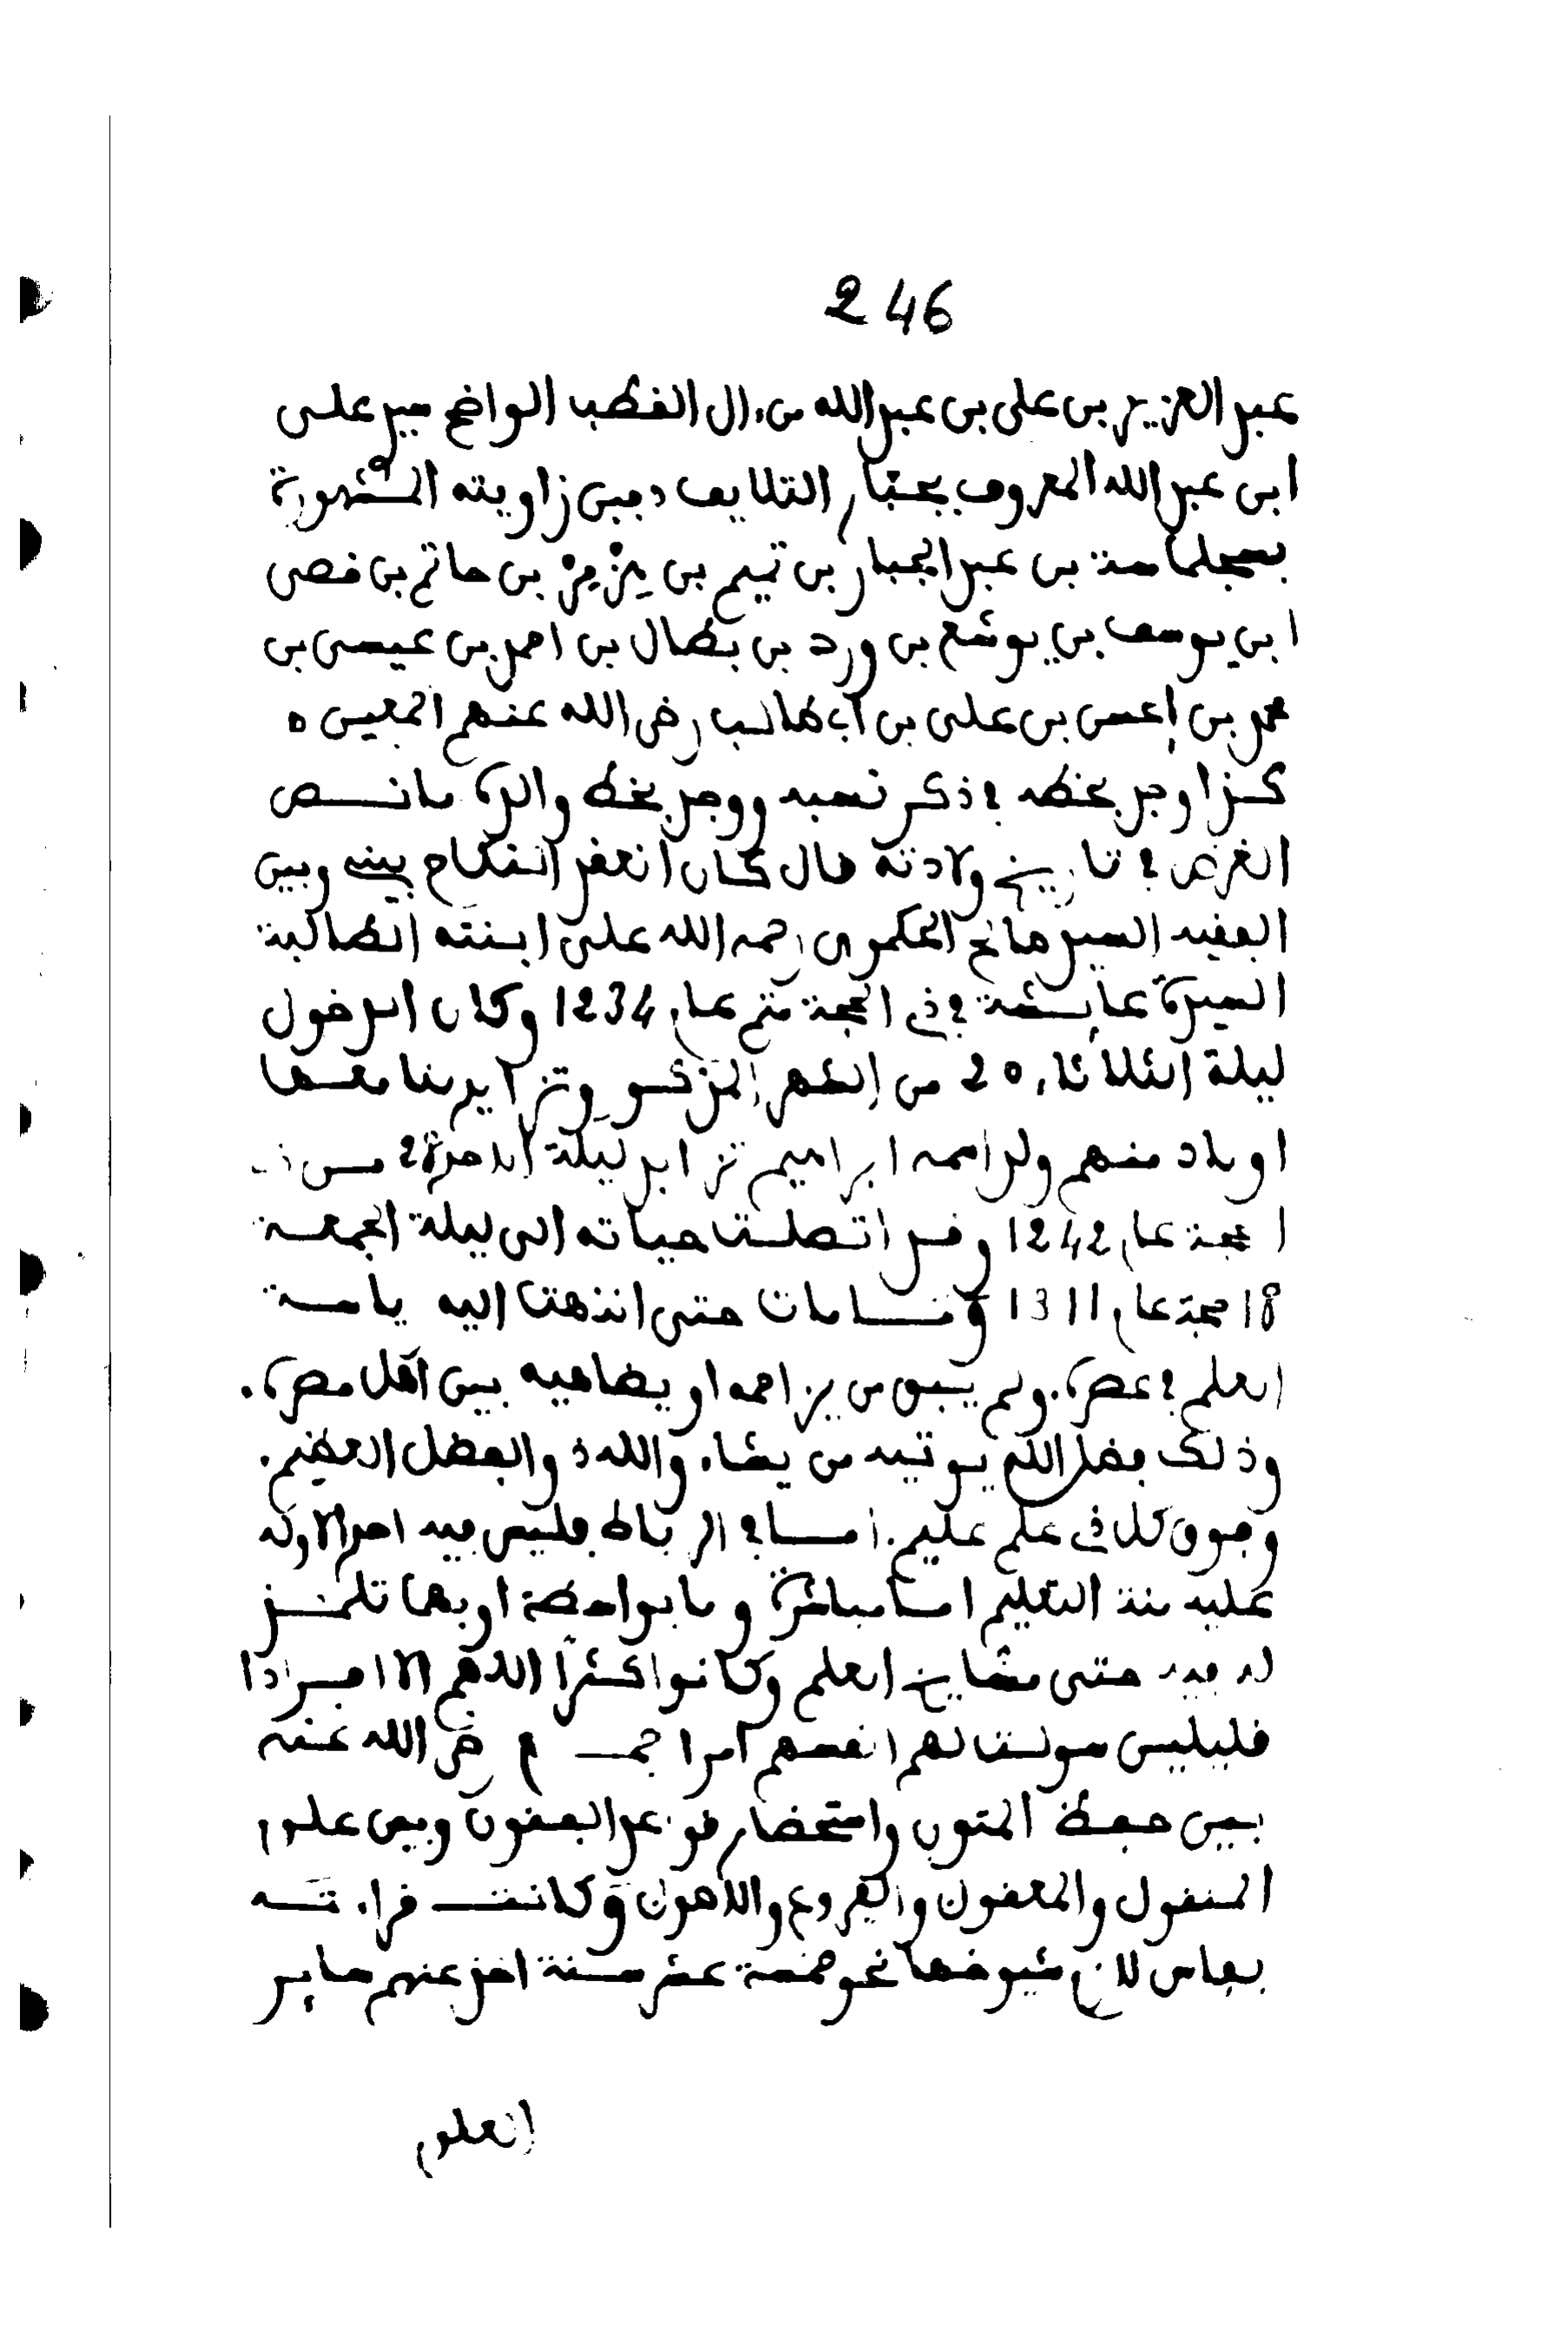 246
عبد العزيز بن على بن عبد الله من ءال القطب الواضح سيد على
ابن عبد الله المعروف بجبار التلايف دفين زاويته المشهورة
بسجلماسة بن عبد الجبار بن تميم بن هزمز بن حاتم بن قصى
ابن يوسف بن يوشع بن ورد بن بطال بن احمد بن عيسى بن
محمد بن الحسن بن على بن أبى طالب رضى الله عنهم أجمعين ه
كذا وجد بخطه فى ذكر نسبه ووجد بخط والده ما نص
الغرض فى تاريخ ولادته قال كان انعقد النكاح بينى وبين
الفقيه السيد صالح الحكموى رحمه الله على ابنته الطالبة
السيدة عايشة فى ذى الحجة متم عام 1234 وكان الدخول
ليلة الثلاثاء 20 من الشهر المذكور وتزايد بنا معها
اولاد منهم ولد اسمه ابراهيم تزايد ليلة الاحد 28 من
الحجة عام 1242 وقد اتصلت حياته الى ليلة الجمعة
18 حجة عام 1311 وما مات حتى انتهت اليه ياسة
العلم فى عصره. ولم يبق من يزاحمه او يضاهيه بين أهل مصره.
وذلك فضل الله يوتيه من يشاء. والله ذو الفضل العظيم.
وفوق كل ذى علم عليم. اما فى الرباط فليس فيه احد الا وله
عليه منة التعليم اما مباشرة وما بواسطة او بهما تلمذ
له فيه حتى مشايخ العلم وكانوا كثرا اللهم الا افرادا
قليلين سولت لهم انفسهم أمرا جمع رضى الله عنه
بين حفظ المتون واستحضار قواعد الفنون وبين علوم
المنقول والمعقول والفروع والاصول وكانت قراءته
بفاس لازم شيوخها نحو خمسة عشر سنة اخذ عنهم ساير
العلوم